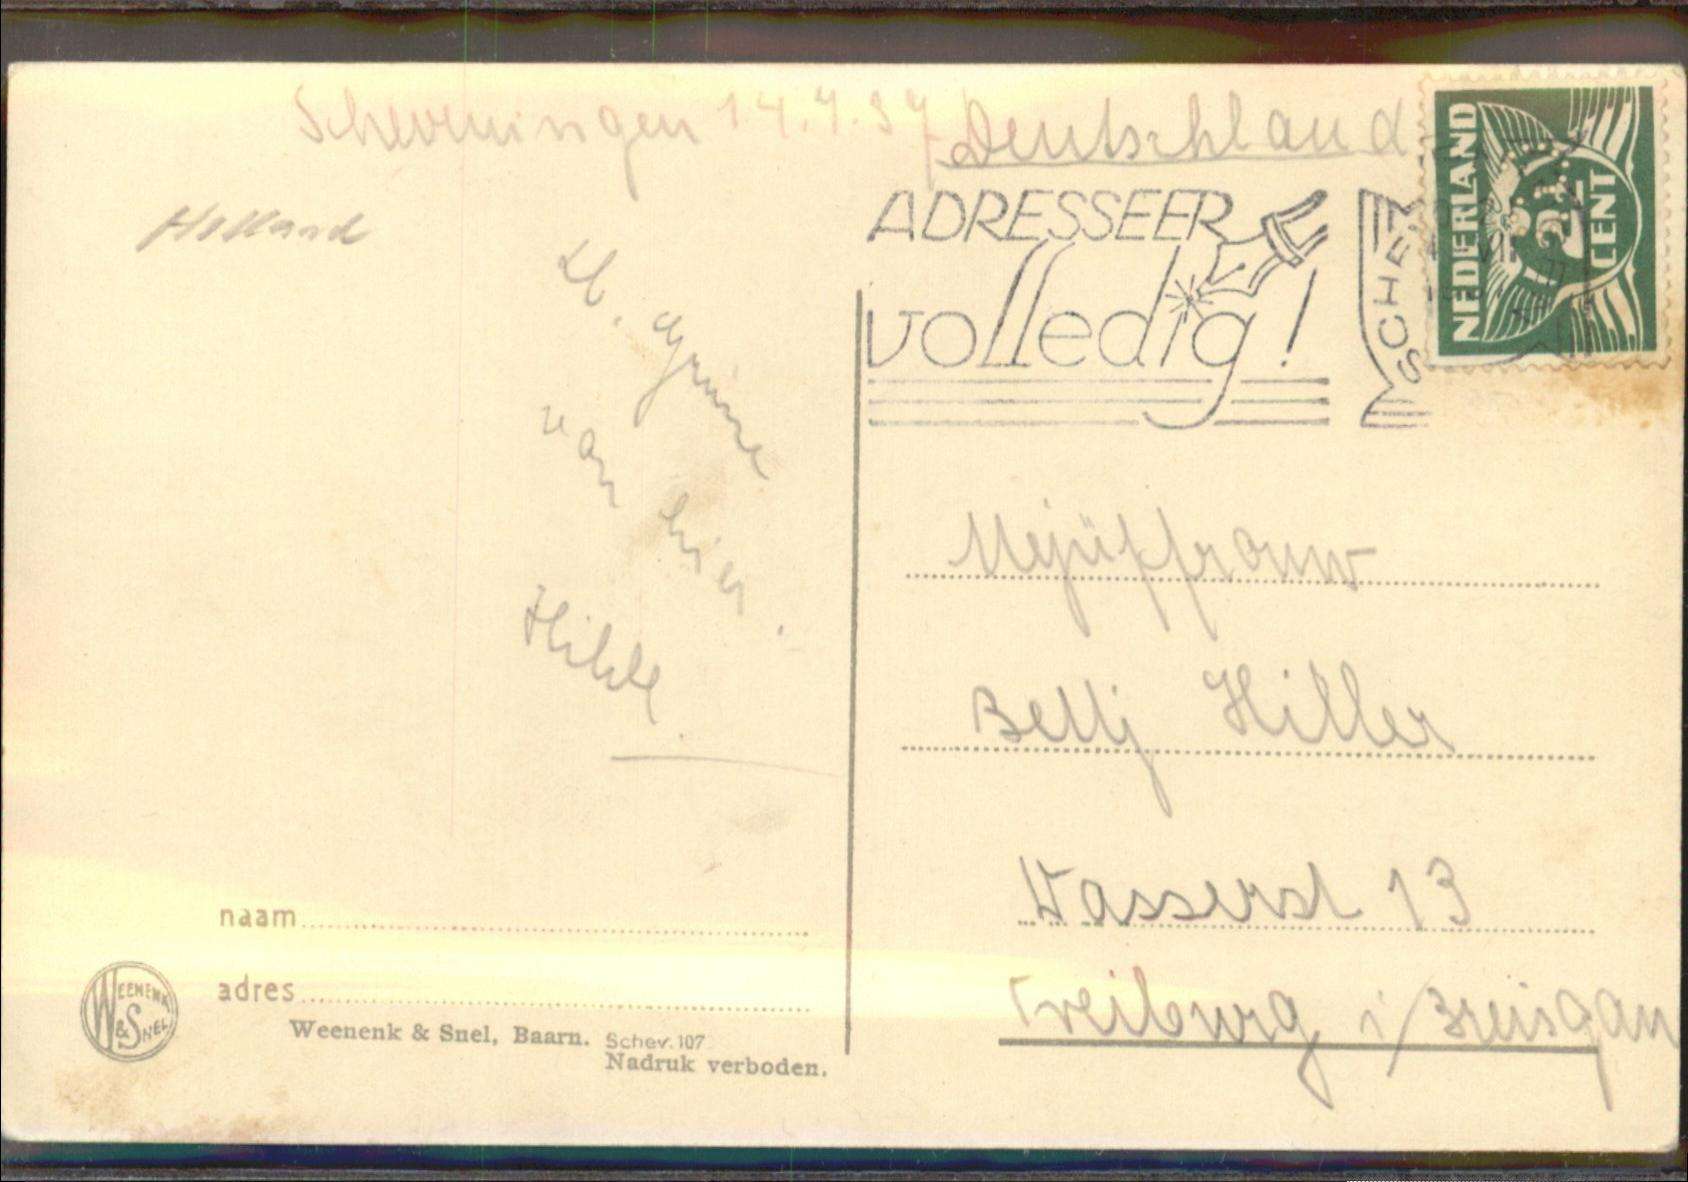 Scheveningen 14.7.37
Deutschland
Holland
ADRESSEER
volledig!
SCHEV
NEDERLAND
2½
CENT
Lb. Grüsse
von hier.
Hilde
Mejüffrouw
Betty Hiller
Wasserst 13
Freiburg i/Breisgau
naam
adres
WEENENK
& SNEL
Weenenk & Snel, Baarn. Schev. 107
Nadruk verboden.